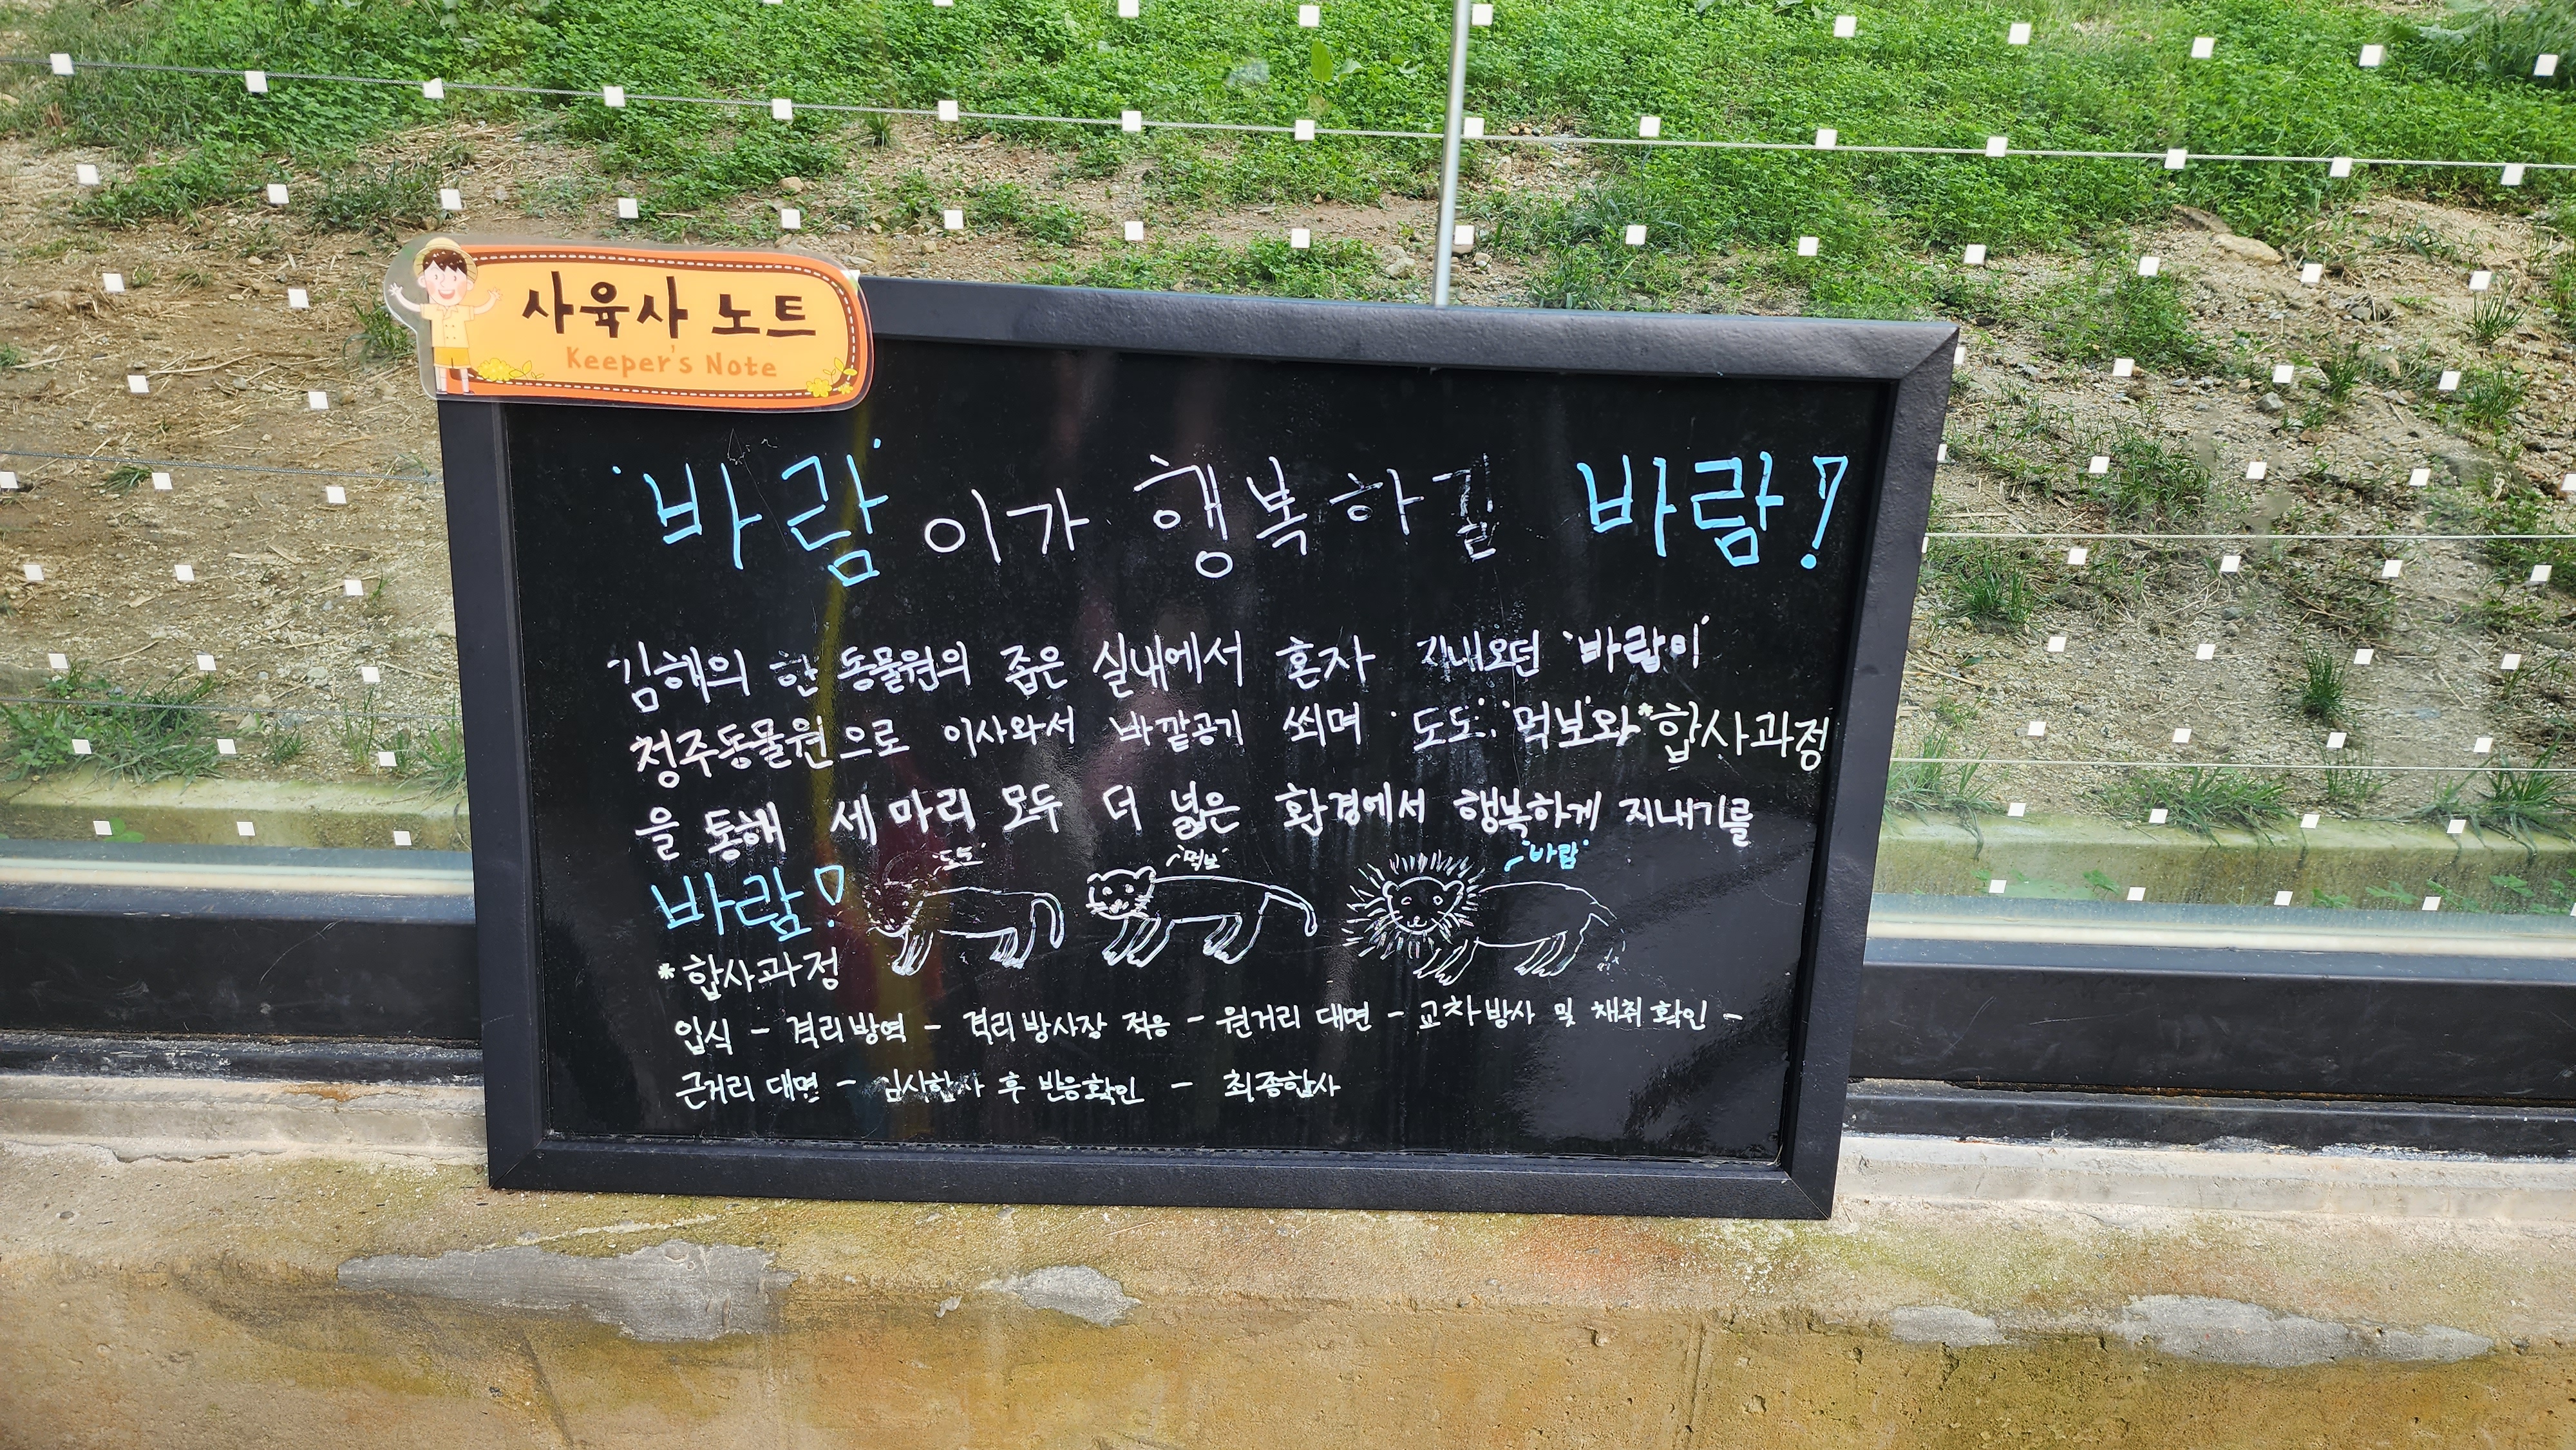 사육사 노트
Keeper's Note
'바람'이가 행복하길 바람!
김해의 한 동물원의 좁은 실내에서 혼자 지내오던 '바람이'
청주동물원으로 이사와서 바깥공기 쐬며 '도도', '먹보'와 *합사과정
을 통해 세 마리 모두 더 넓은 환경에서 행복하게 지내기를
바람!
'도도' '먹보' '바람'
*합사과정
입식 - 격리방역 - 격리방사장 적응 - 원거리 대면 - 교차방사 및 채취확인 -
근거리 대면 - 임시합사 후 반응확인 - 최종합사